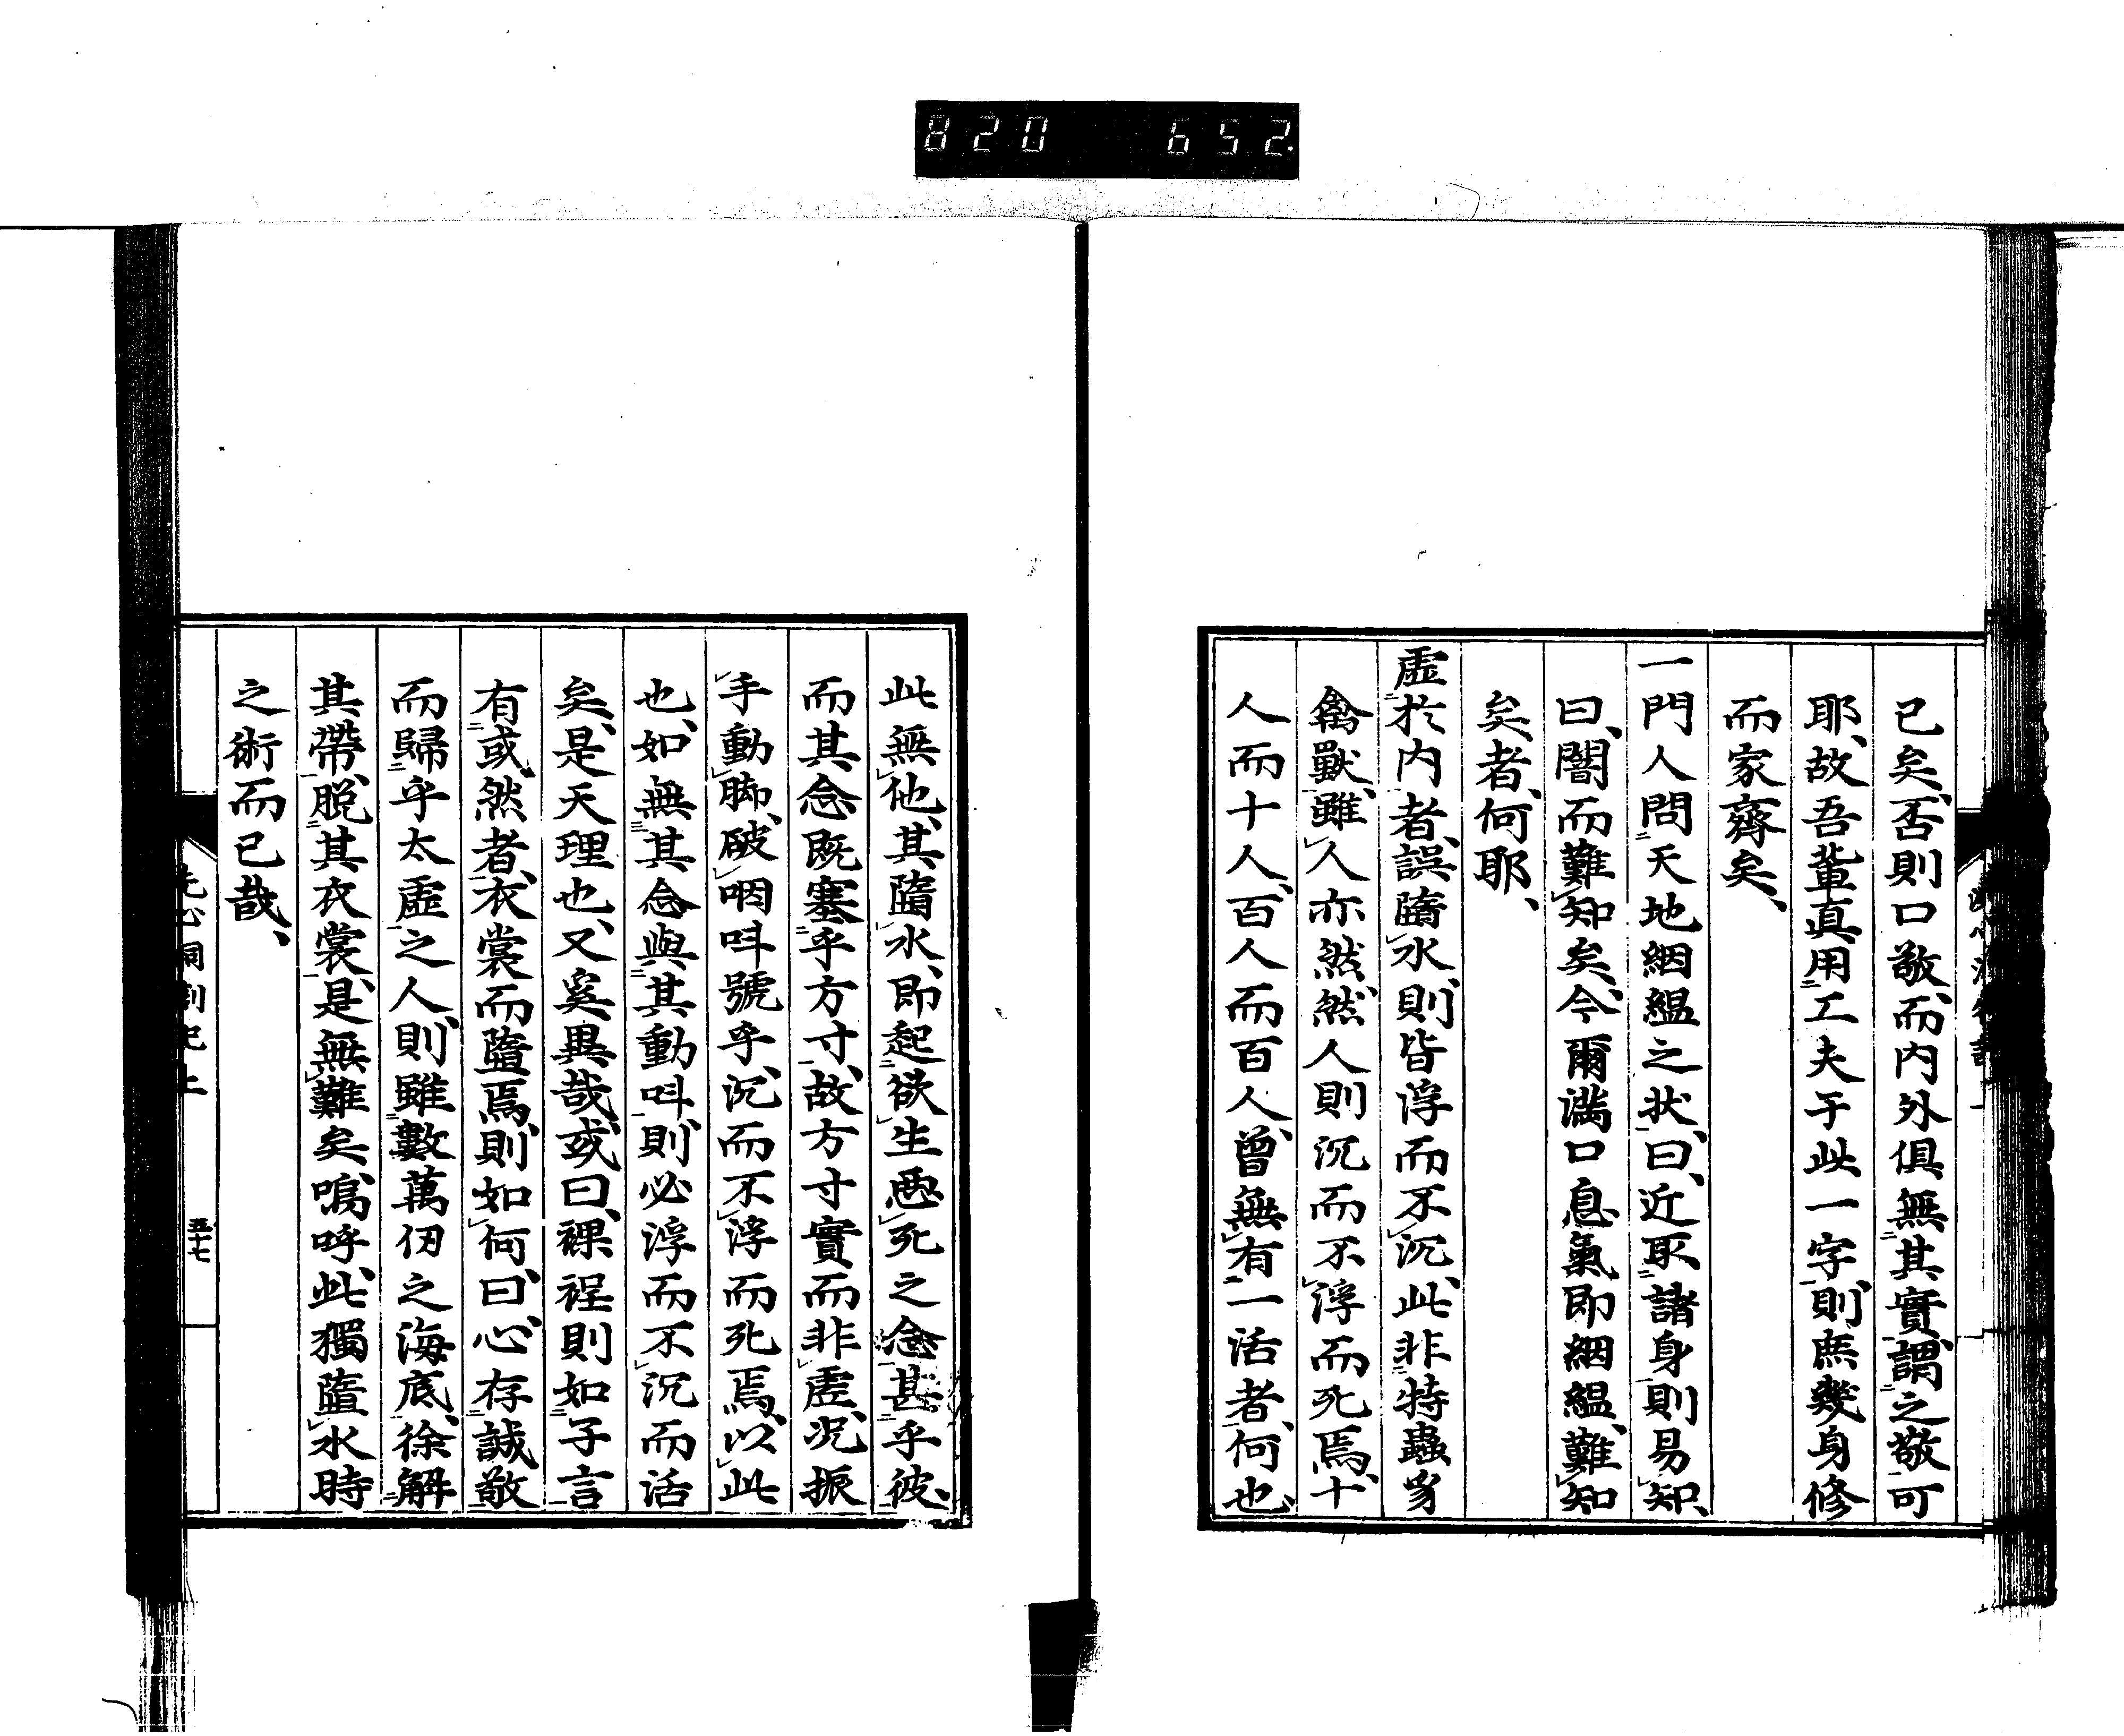 820 652
已矣、否則口敬、而内外俱無其實、謂之敬可
耶、故吾輩真用工夫于此一字、則庶幾身修
而家齊矣、
一門人問天地絪縕之状、曰、近取諸身則易知、
曰、闇而難知矣、今爾満口息氣即絪縕、難知
矣者、何耶、
虛於内者、誤墮水、則皆浮而不沉、此非特蟲豸
禽獸、雖人亦然、然人則沉而不浮而死焉、十
人而十人、百人而百人、曾無有一活者、何也、
此無他、其墮水、即起欲生惡死之念、甚乎彼、
而其念既塞乎方寸、故方寸實而非虛、况振
手動脚、破咽呌號乎、沉而不浮而死焉、以此
也、如無其念與其動呌、則必浮而不沉而活
矣、是天理也、又奚異哉、或曰、裸裎則如子言
有或然者、衣裳而墮焉、則如何、曰、心存誠敬
而歸乎太虛之人、則雖數萬仞之海底、徐解
其帶、脱其衣裳、是無難矣、嗚呼、此獨墮水時
之術而已哉、
洗心洞劄記上
五十七